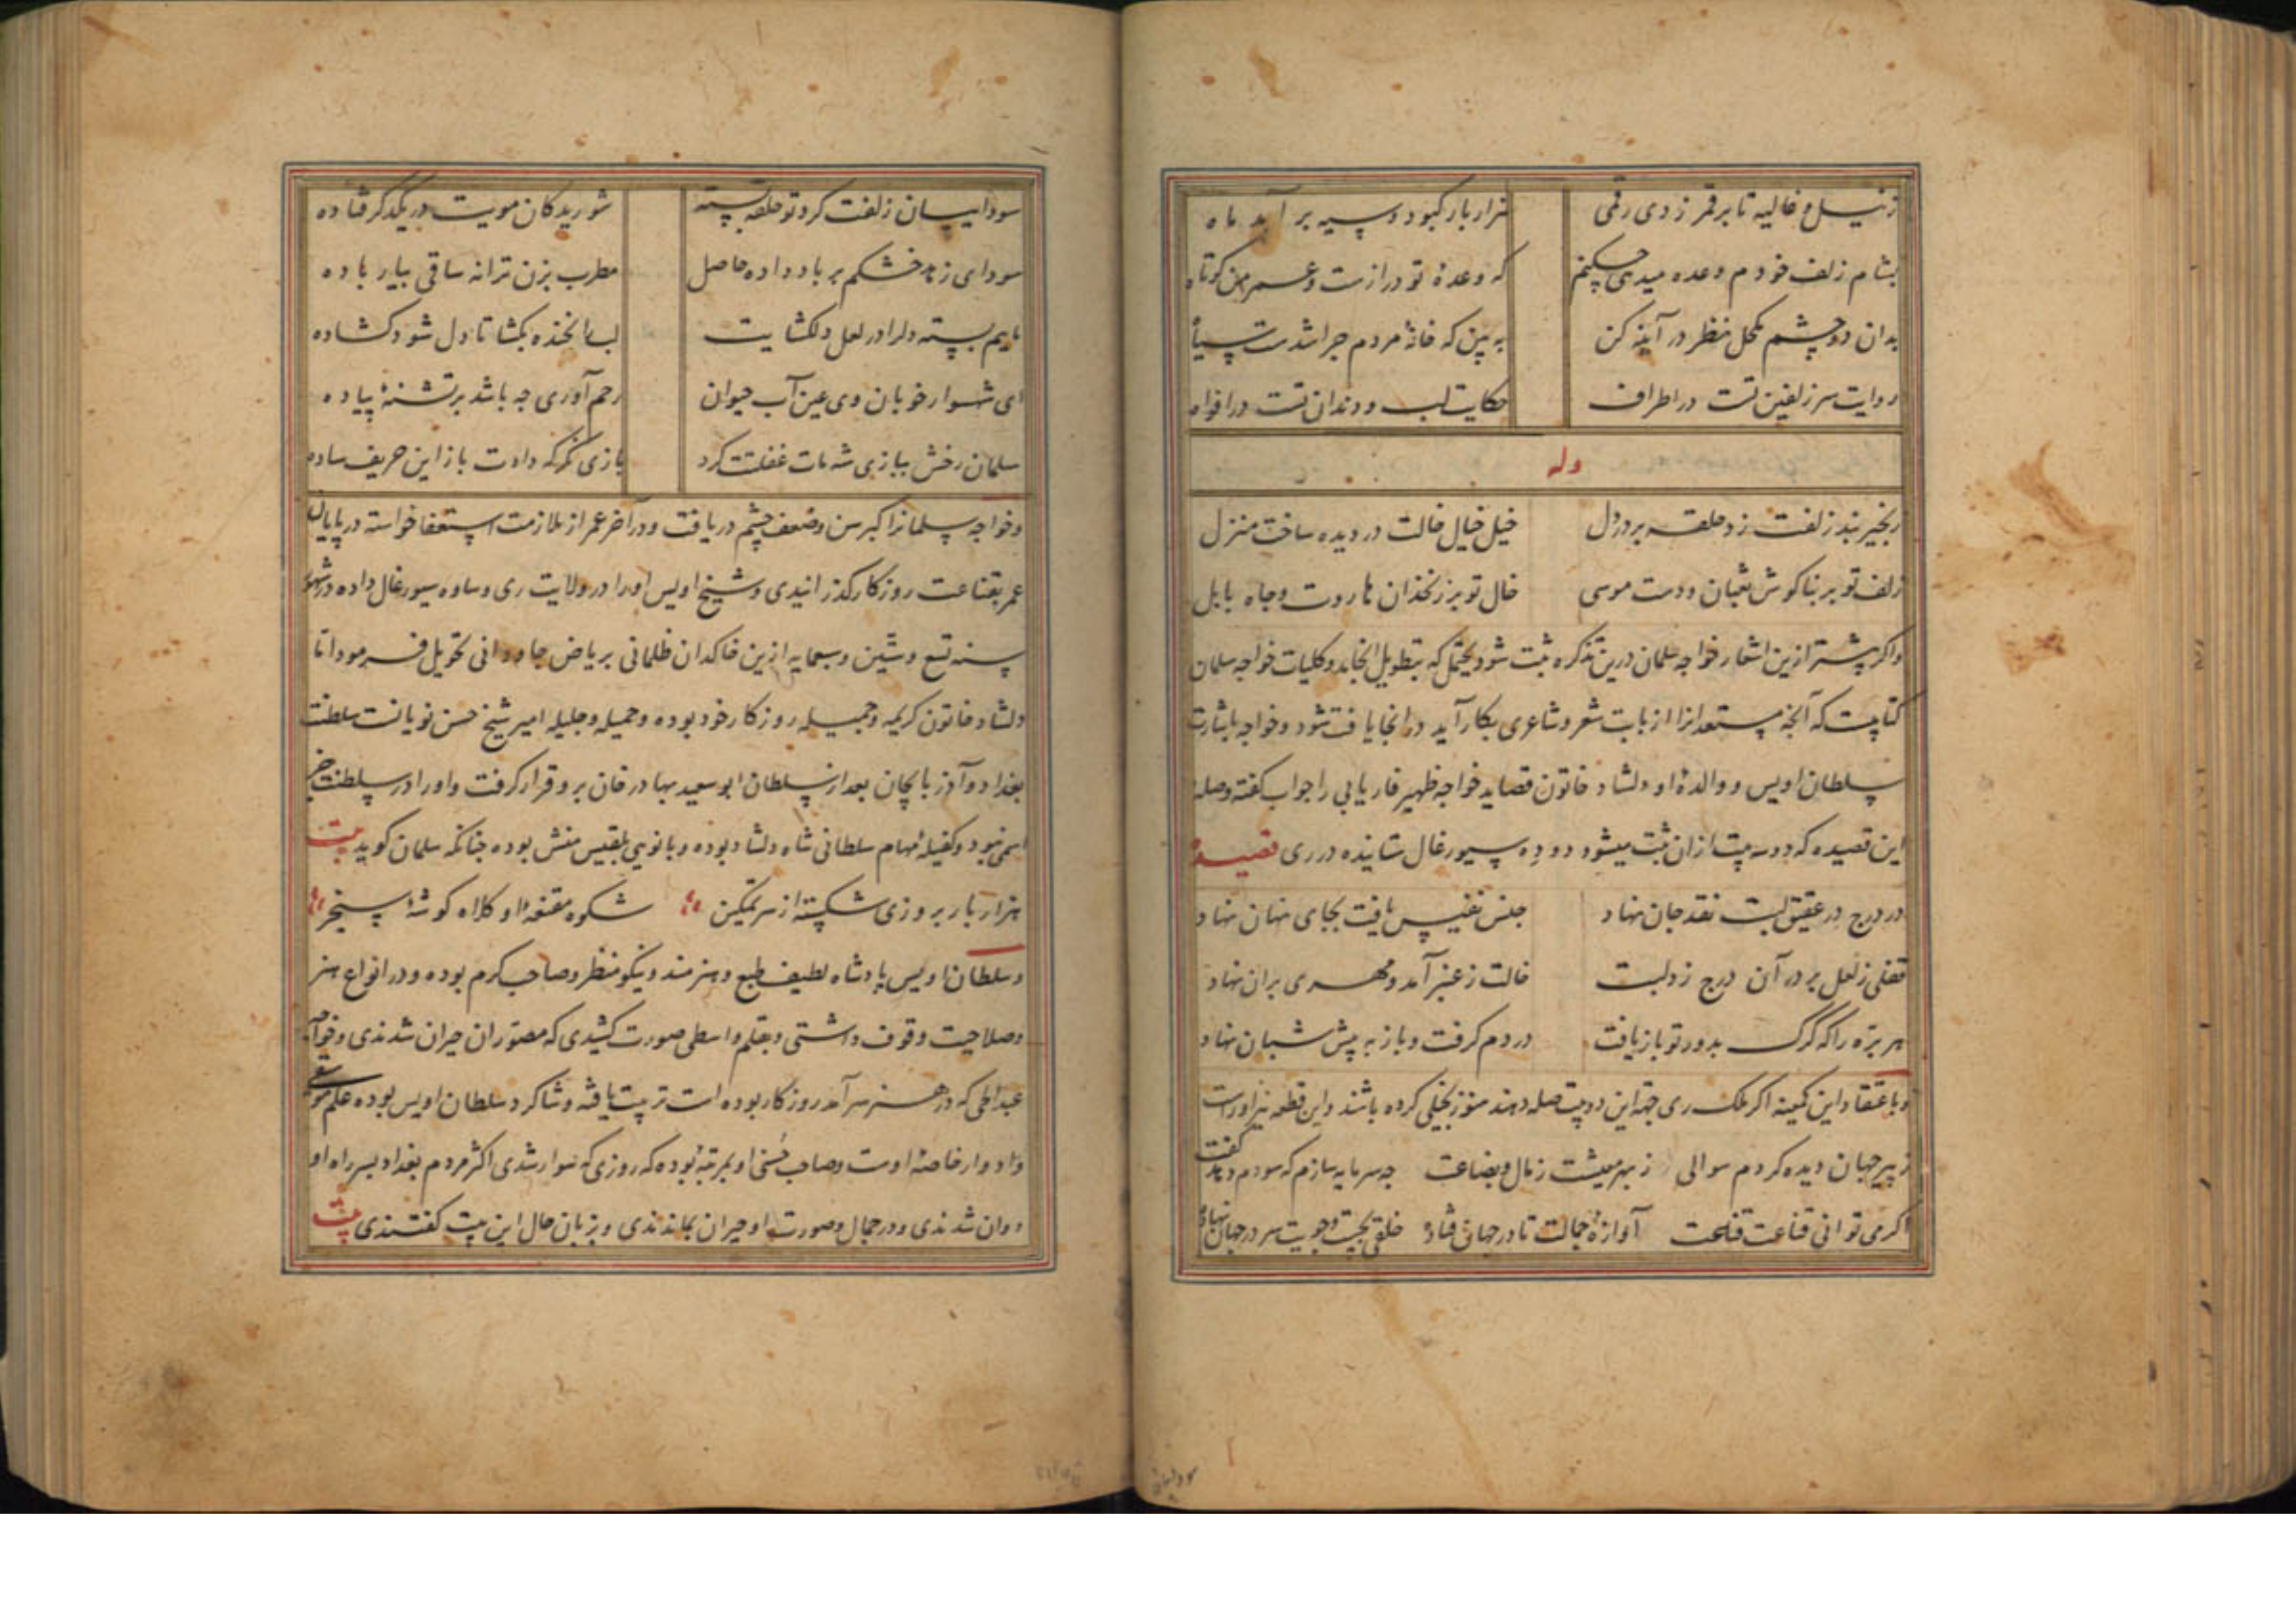 ز نیل و غالیه تا بر قمر زدی رقمی هزار بار کبود و سیه بر آمد ماه
بشام زلف خودم وعده میدهی چکنم که وعدهٔ تو درازست و عمر من کوتاه
بدان دو چشم مکحل نظر در آینه کن به بین که خانهٔ مردم چرا شدست سیاه
روایت سر زلفین تست در اطراف حکایت لب و دندان تست در افواه
وله
زنجیر بند زلفت زد حلقه بر در دل خیل خیال خالت در دیده ساخت منزل
زلف تو بر بناکوش ثعبان و دست موسی خال تو بر زنخدان هاروت و چاه بابل
و اکر پیشتر ازین اشعار خواجه سلمان درین تذکره ثبت شود یحتمل که بتطویل انجامد و کلیات خواجه سلمان
کتابیست که آنچه مستعدانرا از بابت شعر و شاعری بکار آید در انجا یافت شود و خواجه باشارت
سلطان اویس و والدهٔ او دلشاد خاتون قصاید خواجه ظهیر فاریابی را جواب کفته و صله
این قصیده که دو سه بیت ازان ثبت میشود دو ده سیورغال ستانیده در ری قصیده
در درج در عقیق لبت نقد جان نهاد جنس نفیس یافت بجای نهان نهاد
قفلی ز لعل بر در آن درج زد لبت خالت ز عنبر آمد و مهری بران نهاد
هر بره را که کرک بدور تو باز یافت در دم کرفت و باز به پیش شبان نهاد
و باعتقاد این کمینه اکر ملک ری جهة این دو بیت صله دهند هنوز بخیلی کرده باشند و این قطعه نیز اوراست
ز پیر جهان دیده کردم سوالی ز بهر معیشت ز مال و بضاعت چه سرمایه سازم که سودم دهد کفت
اکر می توانی قناعت قناعت آوازهٔ جمالت تا در جهان فتاده خلقی بجست و جویت سر در جهان نهاده
سوداییان زلفت کرد تو حلقه بسته شوریدکان مویت در یکدکر فتاده
سودای زهد خشکم بر باد داده حاصل مطرب بزن ترانه ساقی بیار باده
ماییم بسته دلرا در لعل دلکشایت لب را بخنده بکشا تا دل شود کشاده
ای شهسوار خوبان وی عین آب حیوان رحم آوری چه باشد بر تشنهٔ پیاده
سلمان رخش ببازی شه مات غفلتت کرد بازی نکر که دادت باز این حریف ساده
و خواجه سلمانرا کبر سن و ضعف چشم دریافت و در آخر عمر از ملازمت استعفا خواسته در پایان
عمر بقناعت روزکار کذرانیدی و شیخ اویس اورا در ولایت ری و ساوه سیورغال داده در شهور
سنه تسع و ستین و سبعمایه ازین خاکدان ظلمانی بریاض جاودانی تحویل فرمود اتا
دلشاد خاتون کریمه و جمیله روزکار خود بوده و حمیله و جلیله امیر شیخ حسن نویانست سلطنت
بغداد و آذربایجان بعد از سلطان ابو سعید بهادر خان برو قرار کرفت و اورا در سلطنت جز
اسمی نبود و کفیلهٔ مهام سلطانی شاه دلشاد بوده و بانویی بلقیس منش بوده چنانکه سلمان کوید بیت
هزار بار بروزی شکسته از سر تمکین شکوه مقنعهٔ او کلاه کوشهٔ سنجر
و سلطان اویس پادشاه لطیف طبع و هنرمند و نیکو منظر و صاحب کرم بوده و در انواع هنر
و صلاحیت وقوف داشتی و بقلم واسطی صورت کشیدی که مصوران حیران شدندی و خواجه
عبدالحی که در هنر سر آمد روزکار بوده است تربیت یافته و شاکرد سلطان اویس بوده علم موسیقی
و ادوار خاصهٔ اوست و صاحب حسنی او بمرتبهٔ بوده که روزی که سوار شدی اکثر مردم بغداد بسر راه او
دوان شدندی و در جمال و صورت او حیران بماندندی و بزبان حال این بیت کفتندی بیت